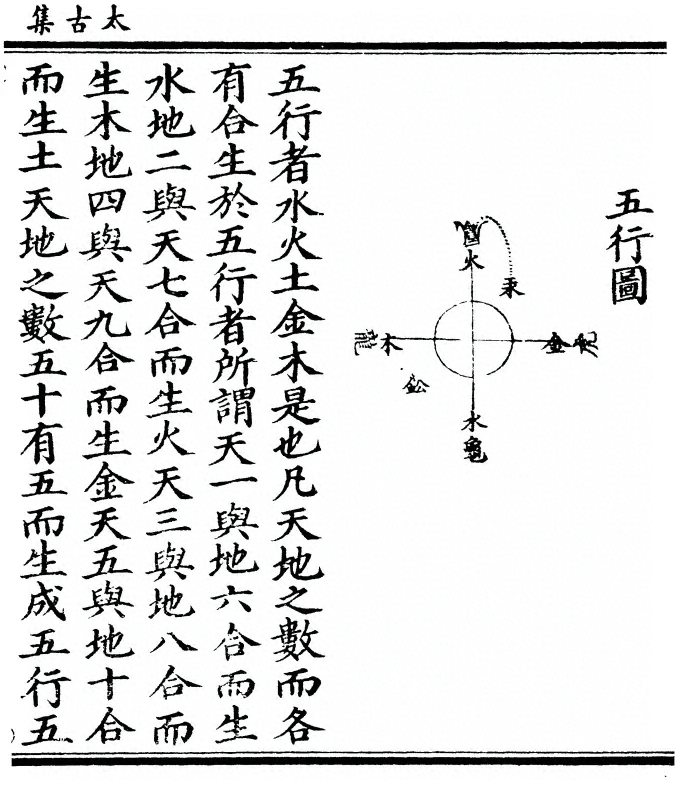 太古集
五行圖
火
汞
金
木
龍
鈆
水
龜
五行者水火土金木是也凡天地之數而各
有合生於五行者所謂天一與地六合而生
水地二與天七合而生火天三與地八合而
生木地四與天九合而生金天五與地十合
而生土天地之數五十有五而生成五行五